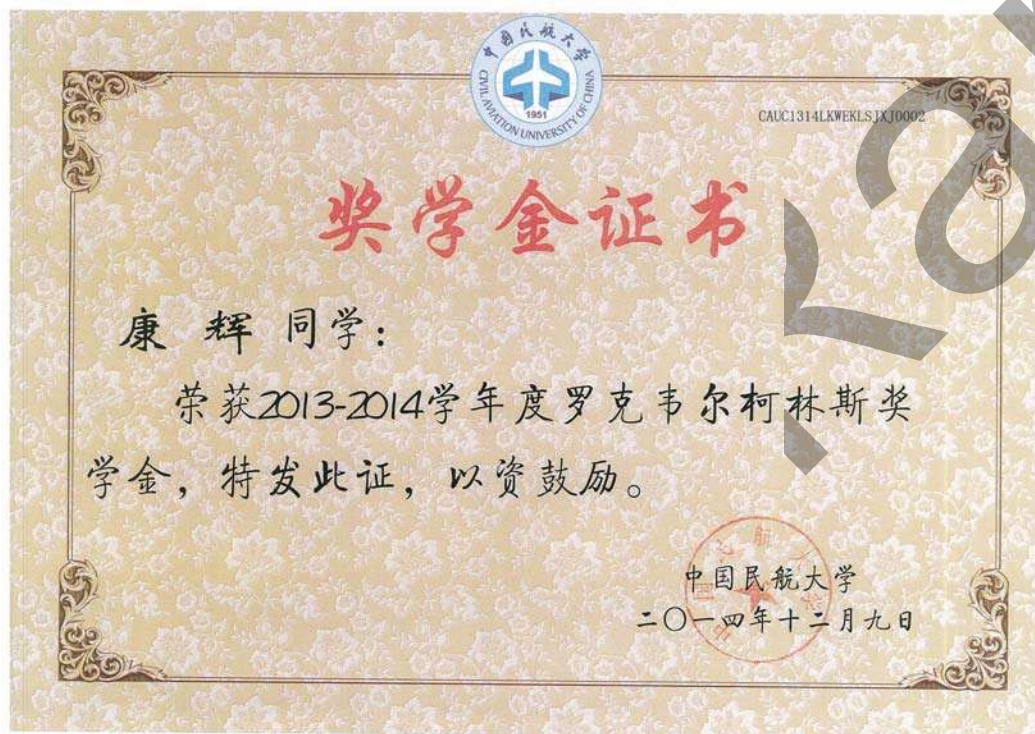 中国民航大学
CIVIL AVIATION UNIVERSITY OF CHINA
1951
CAUC1314LKWEKLSJXJ0002
奖学金证书
康 辉 同学：
荣获2013-2014学年度罗克韦尔柯林斯奖
学金，特发此证，以资鼓励。
中国民航大学
二〇一四年十二月九日